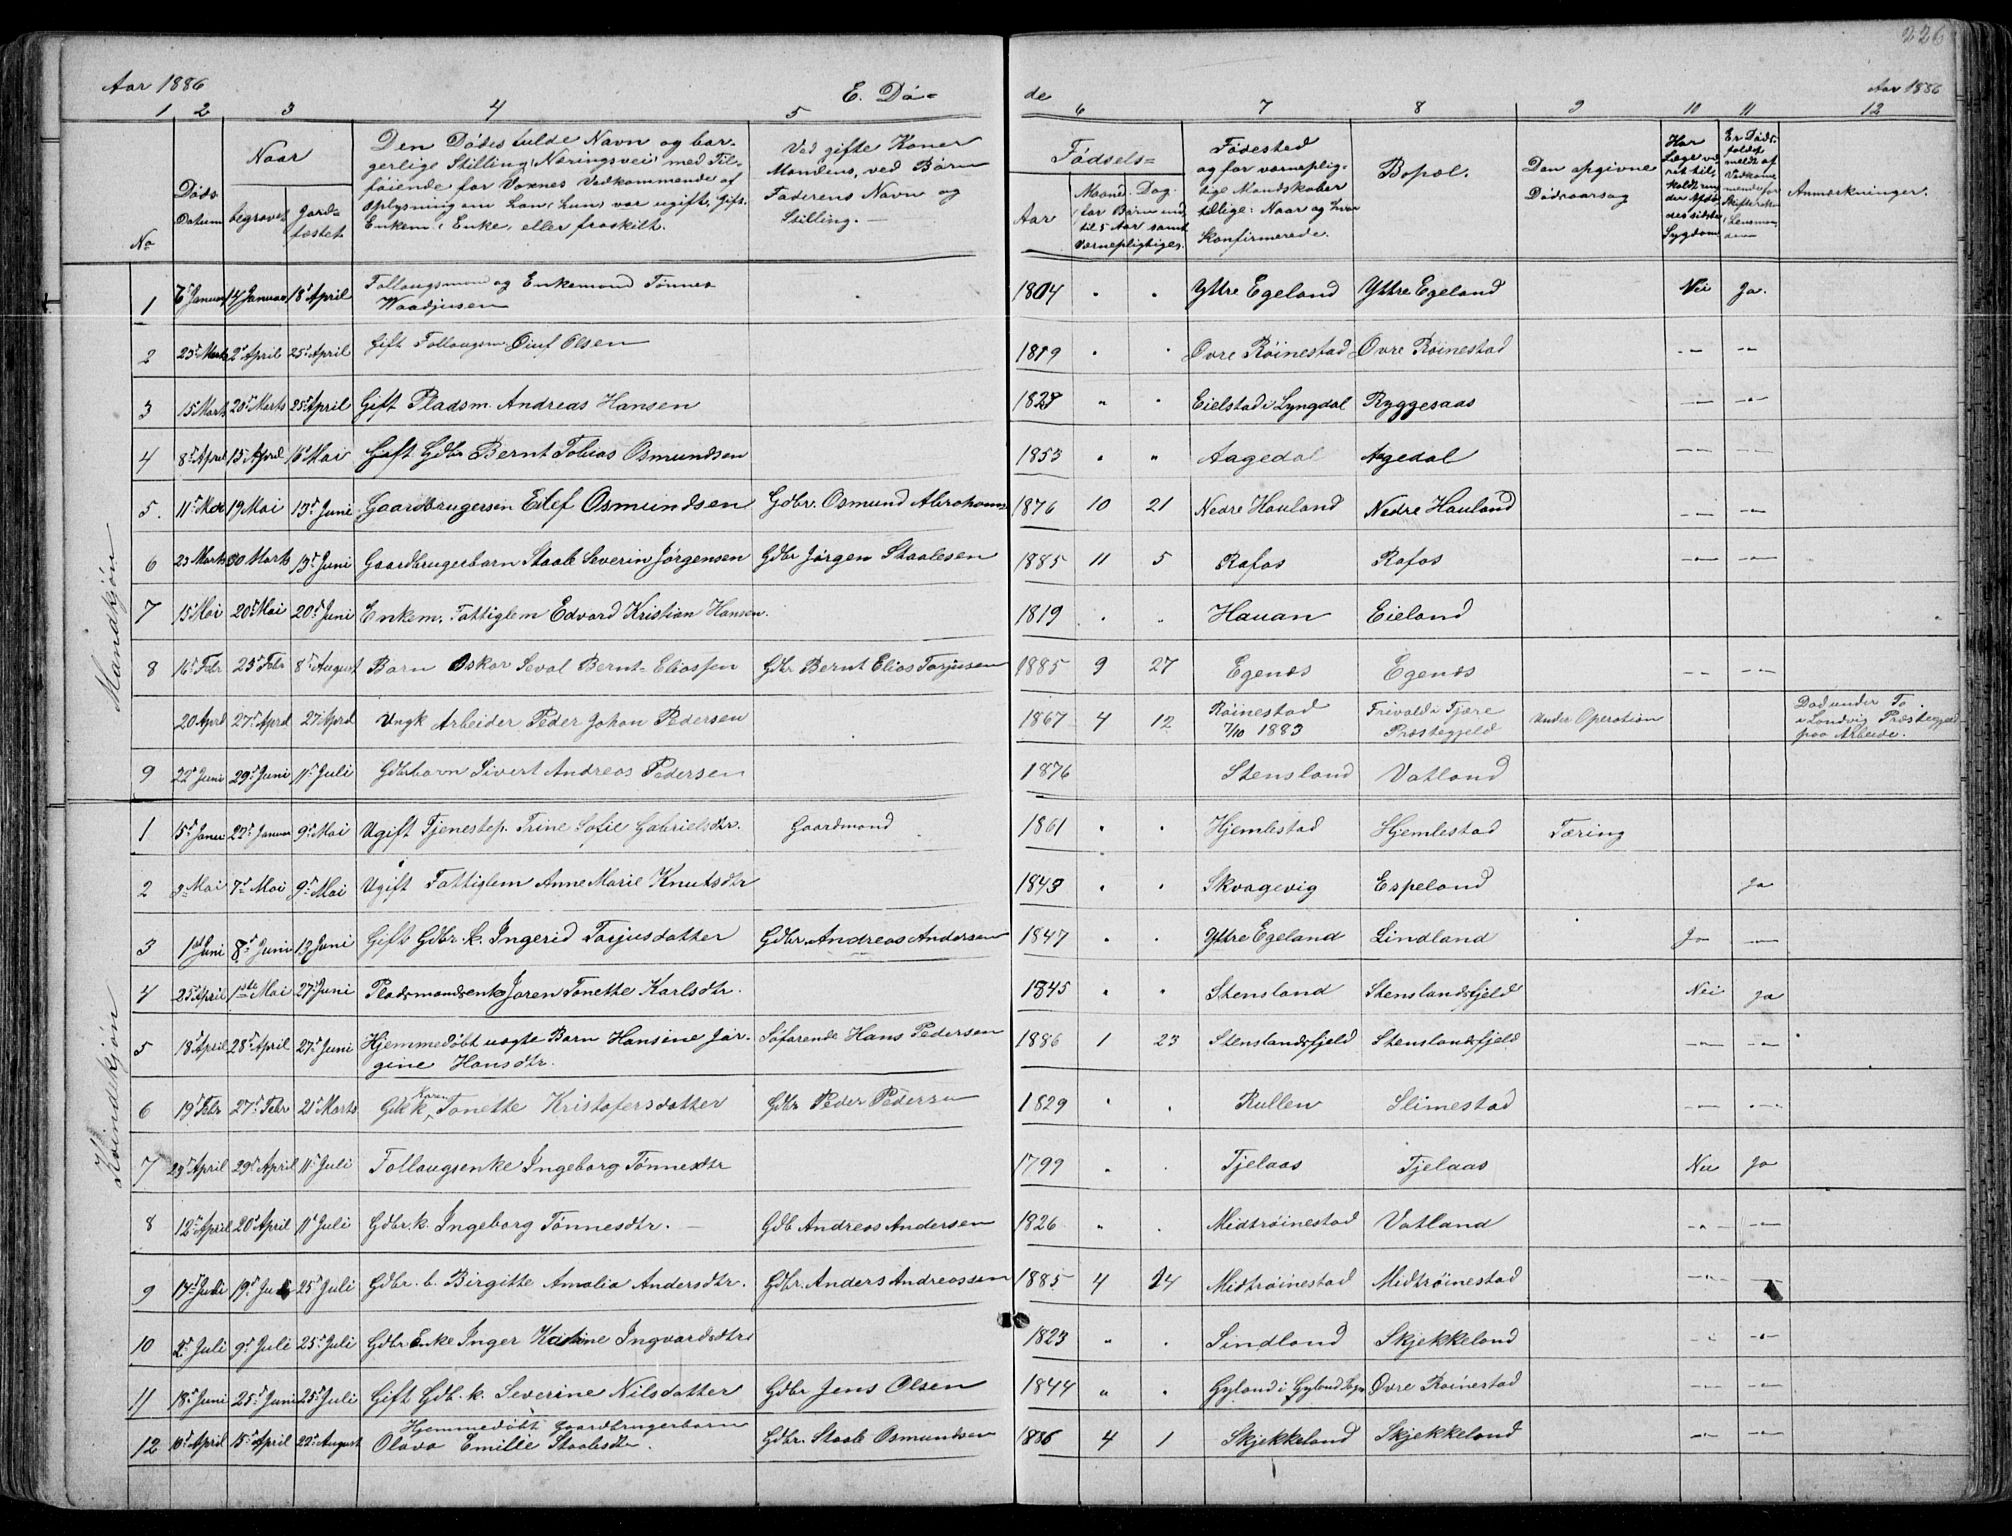 226
Aar 1886 E. Dö= de Aar 1886
1 2 3 4 5 6 7 8 9 10 11 12
No
Döds Datum
Naar
begravet
Jord=fæstet
Den Dödes fulde Navn og bor-
gerlige Stilling (Næringsvei) med Til-
föiende for Voxnes Vedkommende af
Oplysning om han (hun) var ugift, Gift,
Enkem. Enke, eller fraskilt.
Ved gifte Koner
Mandens, ved Børn
Faderens Navn og
Stilling.
Födsels=
Aar
Maaned. Dag.
for Börn ind
til 5 Aar samt
Værnepligtige.
Födested
og for værneplig-
tige Mandskaber
tillige: Naar og hvor
Konfirmerede.
Bopæl.
Den opgivne
Dödsaarsag
Har Læge væ
ret til-
kaldt un
der Afdö
des sidste
Sygdom
Er Döds
faldet
meldt af
Vedkom
mende for
Skifteret
Lensman
den
Anmærkninger.
Mandkjön
1 6t Januar 14 Januar 18t April Follaugsmand og Enkemand Tönnes Waadjusen 1804 " " Yttre Egeland Yttre Egeland Nei Ja.
2 23t Marts 2t April 25t April Gift Follaugsm. Oluf Olsen 1819 " " Ovre Röinestad Ovre Röinestad — —
3 15 Marts 20t Marts 25t April Gift Pladsm. Andreas Hansen 1828 " " Eielstad i Lyngdal Ryggesaas — —
4 8t April 15 April 16 Mai Gift Gdbr Bernt Tobias Osmundsen 1853 " " Aagedal Aagedal — —
5. 11t Mai 19 Mai 13t Juni Gaardbrugersön Eilef Osmundsen Gdbr. Osmund Abrahams 1876 10 21 Nedre Hauland Nedre Hauland — —
6 23 Marts 30 Marts 13t Juni Gaardbrugerbarn Staale Severin Jörgensen Gdbr Jörgen Staalesen 1885 11 5 Rafos Rafos — —
7 15 Mai 20t Mai 20t Juni Enkem. Fattiglem Edvard Kristian Hansen. 1819 " " Hauan Eieland
8 16t Febr 23t Febr 8t August Barn Oskar Seval Bernt=Eliassen Gdbr Bernt Elias Tarjusen 1885 9 27 Egenæs Egenæs — —
20 April 27 April 27 April Ungk Arbeider Peder Johan Pedersen 1867 4 12 Röinestad 7/10 1883 Frivold i Fjære Præstegjeld Under Operation Död under To i Landvig Præstegjeld paa Arbeide.
9 22t Juni 29t Juni 11t Juli Gdbrbarn Sivert Andreas Pedersen 1876 Stensland Vatland
Kvindekjön
1 15t Januar 22t Januar 9t Mai Ugift Tjenestep. Trine Sofie Gabrielsdtr. Gaardmand 1861 " " Hjemlestad Hjemlestad Tæring
2 3 Mai 7t Mai 9t Mai Ugift Fattiglem Anne Marie Knutsdtr 1843 " " Skvagevig Espeland Ja
3 1st Juni 8t Juni 13 Juni Gift Gdbr. k. Ingerid Tarjusdatter Gdbr. Andreas Andersen 1847 " " Yttre Egeland Lindland Ja —
4 25t April 1ste Mai 27t Juni Pladsmandsenke Joren Tonette Karlsdtr. 1845 " " Stensland Stenslandsfjeld Nei Ja
5 18t April 28t April 27t Juni Hjemmedöbt uægte Barn Hansine Jör-
gine Hansdtr. Söfarende Hans Pedersen 1886 1 23 Stenslandsfjeld Stenslandsfjeld — —
6 19t Febr 27t Febr 21t Marts Gdbr k Karen Tonette Kristofersdatter Gdbr Peder Pedersen 1829 " " Rullen Slimestad — —
7 23t April 29t April 11t Juli Follaugsenke Ingeborg Tönnesdtr 1799 " " Tjelaas Tjelaas Nei Ja
8 12t April 20t April 11t Juli Gdbr. k. Ingeborg Tönnesdtr. Gdb Andreas Andersen 1826 " " Midtröinestad Vatland — —
9 14t Juli 19t Juli 25t Juli Gdbr. b. Birgitte Amalia Andersdtr. Gdbr. Anders Andreassen 1885 4 14 Midtröinestad Midtröinestad — —
10 2t Juli 9t Juli 25t Juli Gdbr. Enke Inger Katrine Ingvardsdtr 1823 " " Sindland Skjekkeland — —
11 18t Juni 25t Juni 25t Juli Gift Gdb. k. Severine Nilsdatter Gdbr Jens Olsen 1844 " " Gyland i Gyland Sogn Övre Röinestad — —
12 10t April 15t April 22t August Hjemmedöbt Gaardbrugerbarn
Olava Emilie Staalesdtr. Gdbr. Staale Osmundsen 1886 4 1 Skjekkeland Skjekkeland — —